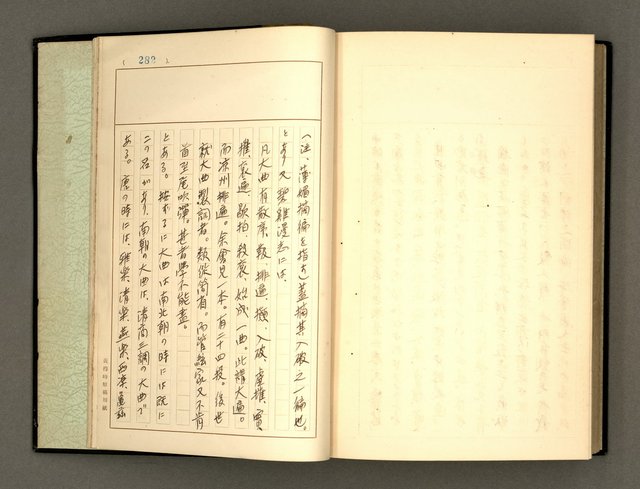 ( 289 )
(注、薄媚摘編を指す)蓋摘其入破之一編也。
とあり又碧雞漫志には、
凡大曲有散序、靸、排遍、攧、入破、虛催、實
催、袞遍、歇拍、殺袞、始成一曲。此謂大遍。
而凉州排遍。余曾見一本。有二十四段。後世
就大曲製詞者。類從簡省。而管絃家又不肯
首至尾吹彈。甚者學不能盡。
とある。按ずるに大曲は南北朝の時には既に
この名があり、南朝の大曲は、清商三調の大曲で
ある。唐の時には、雅樂、清樂、燕樂、西凉、龜茲